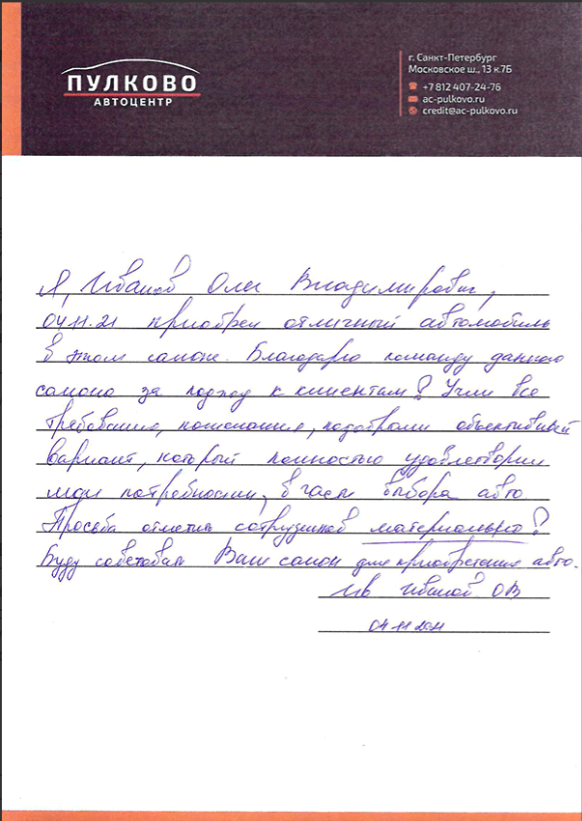 ПУЛКОВО
АВТОЦЕНТР
г. Санкт-Петербург
Московское ш., 13 к.7Б
+7 812 407-24-76
ac-pulkovo.ru
credit@ac-pulkovo.ru
Я, Иванов Олег Владимирович,
04.11.21 приобрел отличный автомобиль
в этом салоне. Благодарю команду данного
салона за подход к клиентам! Учли все
требования, пожелания, подобрали объективный
вариант, который полностью удовлетворил
мои потребности, в выбора авто
Просьба отметить сотрудников материально!
Буду советовать Ваш салон для приобретения авто.
Иванов ОВ
04 11 2021